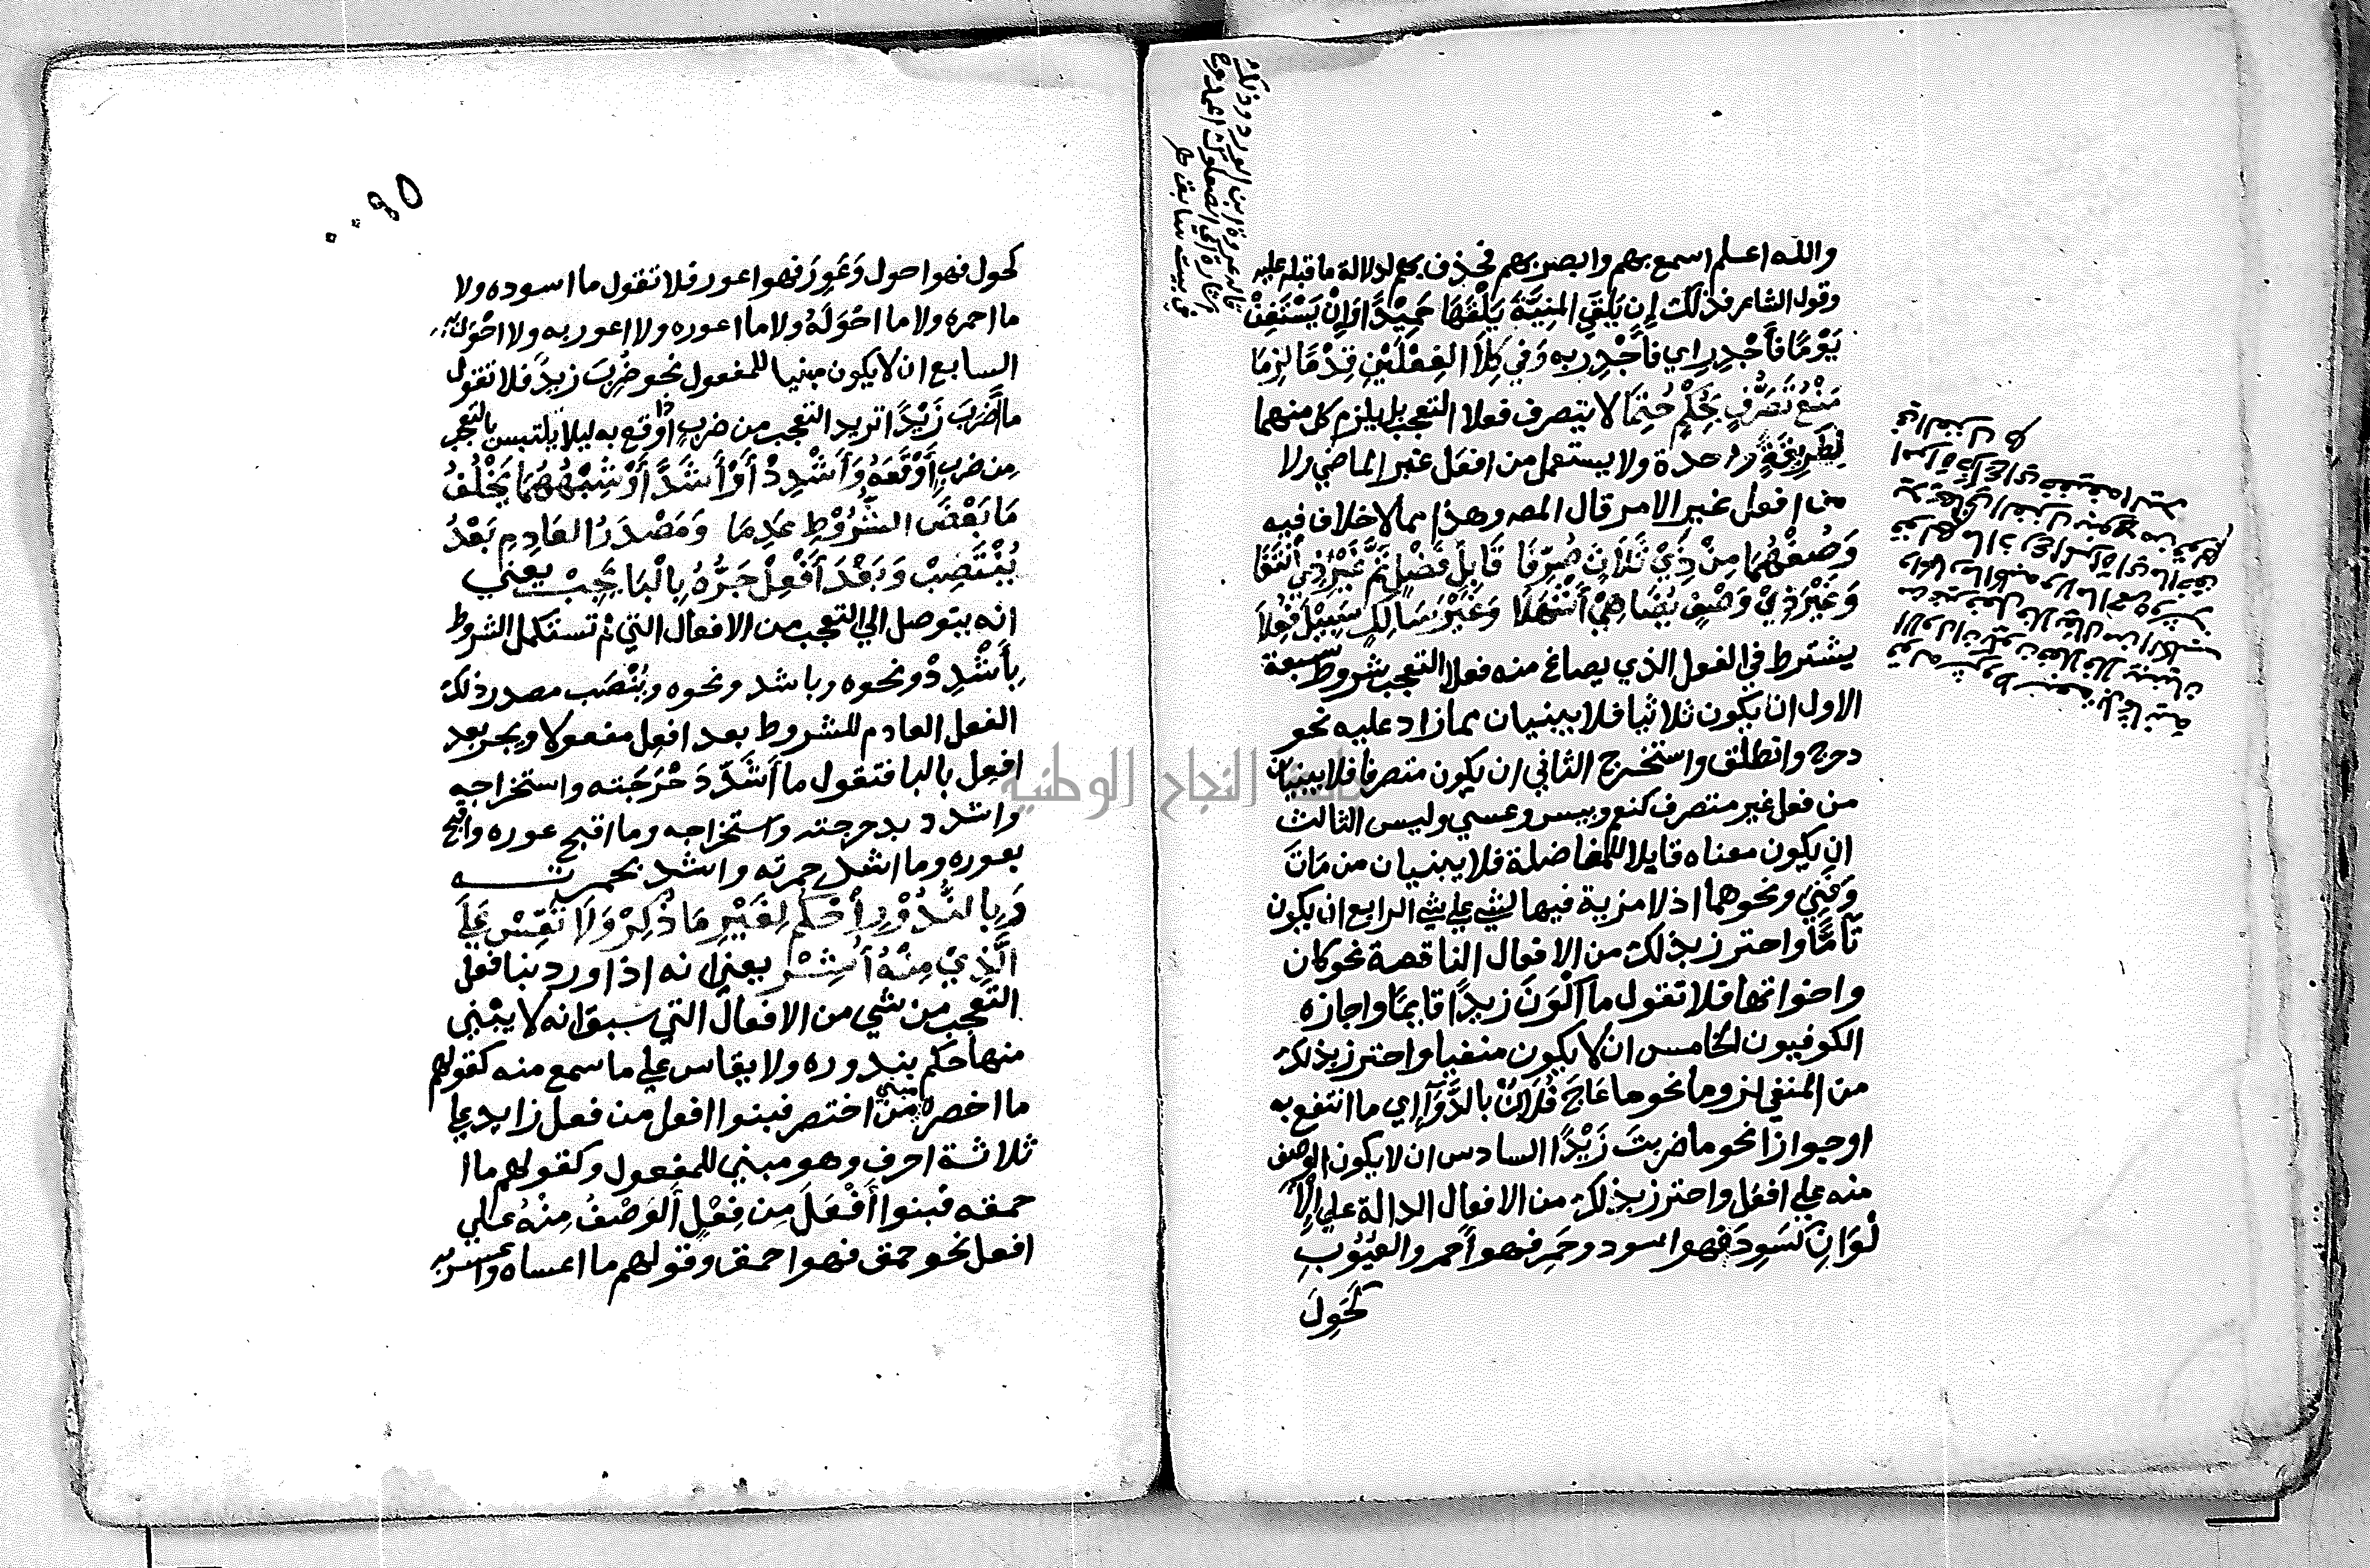 والله اعلم اسمع بهم وابصر بهم فحذف بهم لدلالة ما قبله عليه
وقول الشاعر فذلك إن يَلْقَ المنِيَّةَ يَلْقَهَا حَمِيْدًا وَإِنْ يَسْتَغْنِ
يَوْمًا فأَجْدِرِ اي فأَجْدِر به وَفي كِلاَ الفِعْلَيْنِ قِدْمًا لزِمَا
مَنْعُ تَصَرُّفٍ بِحُكْمٍ حُتِمَا لا يتصرف فعلا التعجب بل يلزم كل منهما
طَرِيقَةٍ واحدة ولا يستعمل من افعَل غير الماضي ولا
من افعِل غير الامر قال المصـ وهذا مما لا خلاف فيه
وَصُغْهُمَا مِنْ ذِيْ ثَلاَثٍ صُرِّفَا قَابِلَ فَضْلٍ تَمَّ غَيْرَ ذِي انْتِفَا
وَغَيْرَ ذِيْ وَصْفٍ يُضَاهِيْ أَشْهَلَا وَغَيْرَ سَالِكٍ سَبِيْلَ فُعِلاَ
يشترط في الفعل الذي يصاغ منه فعلا التعجب شروط سبعة
الاول ان يكون ثلاثيا فلا يبنيان مما زاد عليه نحو
دحرج وانطلق واستخرج الثاني ان يكون متصرفا فلا يبنيان
من فعل غير متصرف كنعم وبيس وعسي وليس الثالث
ان يكون معناه قابلا للمفاضلة فلا يبنيان من مَاتَ
وَفَنِيَ ونحوهما اذ لا مزية فيها لشي علي شي الرابع ان يكون
تَآمًّا واحترز بذلك من الافعال الناقصة نحو كان
واخواتها فلا تقول ما أَكْوَنَ زيدًا قايمًا واجازه
الكوفيون الخامس ان لا يكون منفيا واحترز بذلك
من المنفي لزوما نحو ما عَاجَ فُلاَنٌ بالدَّوَآءِ اي ما انتفع به
او جوازا نحو ما ضربتَ زَيْدًا السادس ان لا يكون الوصف
منه علي افعل واحترز بذلك من الافعال الدالة علي الاَ
لْوَانِ كسَوِدَ فهو اسود وحَمِرَ فهو أحمر والعُيُوْبِ
كَحَوِلَ
كحول فهو احول وَعَوِرَ فهو اعور فلا تقول ما اسوده ولا
ما احمره ولا ما احْوَلَهُ ولا ما اعوره ولا اعور به ولا احْوِل به
السابع ان لا يكون مبنيا للمفعول نحو ضُرِبَ زيدٌ فلا تقول
ما أَضْرَبَ زَيْدًا تريد التعجب من ضربٍ اوقع به ليلا يلتبس بالتعجب
مِن ضربٍ أَوْقَعَهُ وَأَشْدِدْ أَوْ أَشَدَّ أَوْ شِبْهُهُمَا يَخْلُفُ
مَا بَعْضَ الشُّرُوْطِ عَدِمَا وَمَصْدَرُ العَادِمِ بَعْدُ
يَنْتَصِبْ وَبَعْدَ أَفْعِلْ جَرُّهُ بِالْبَا يَجِبْ يعني
انه يتوصل الي التعجب من الافعال التي لم تستكمل الشروط
بِأَشْدِدْ ونحوه وباشد ونحوه ويُنْصَب مصدر ذلك
الفعل العادم للشروط بعد افعل مفعولا ويجر بعد
افعِل بالبا فتقول ما أَشَدّ دَحْرَجَته واستخراجه
واشدد بدحرجته واستخراجه وما اقبح عوره واقبح
بعوره وما اشد حمرته واشدد بحمرته
وَبِالنُّدُوْرِ أُحْكُمْ لِغَيْرِ مَا ذُكِرْ وَلاَ تَقِسْ عَلَي
الَّذِيْ مِنْهُ أُثِرْ يعني انه اذا ورد بنا فعل
التعجب من شي من الافعال التي سبق انه لا يبني
منها حكم بندوره ولا يقاس علي ما سمع منه كقولهم
ما اخصره من اختصر فبنوا افعل من فعل زايد علي
ثلاثة احرف وهو مبني للمفعول وكقولهم ما ا
حمقه فبنوا أَفْعَلَ مِن فِعْلٍ أَلوَصْفُ مِنْهُ علي
افعل نحو حمق فهو احمق وقولهم ما اعساه واعس به